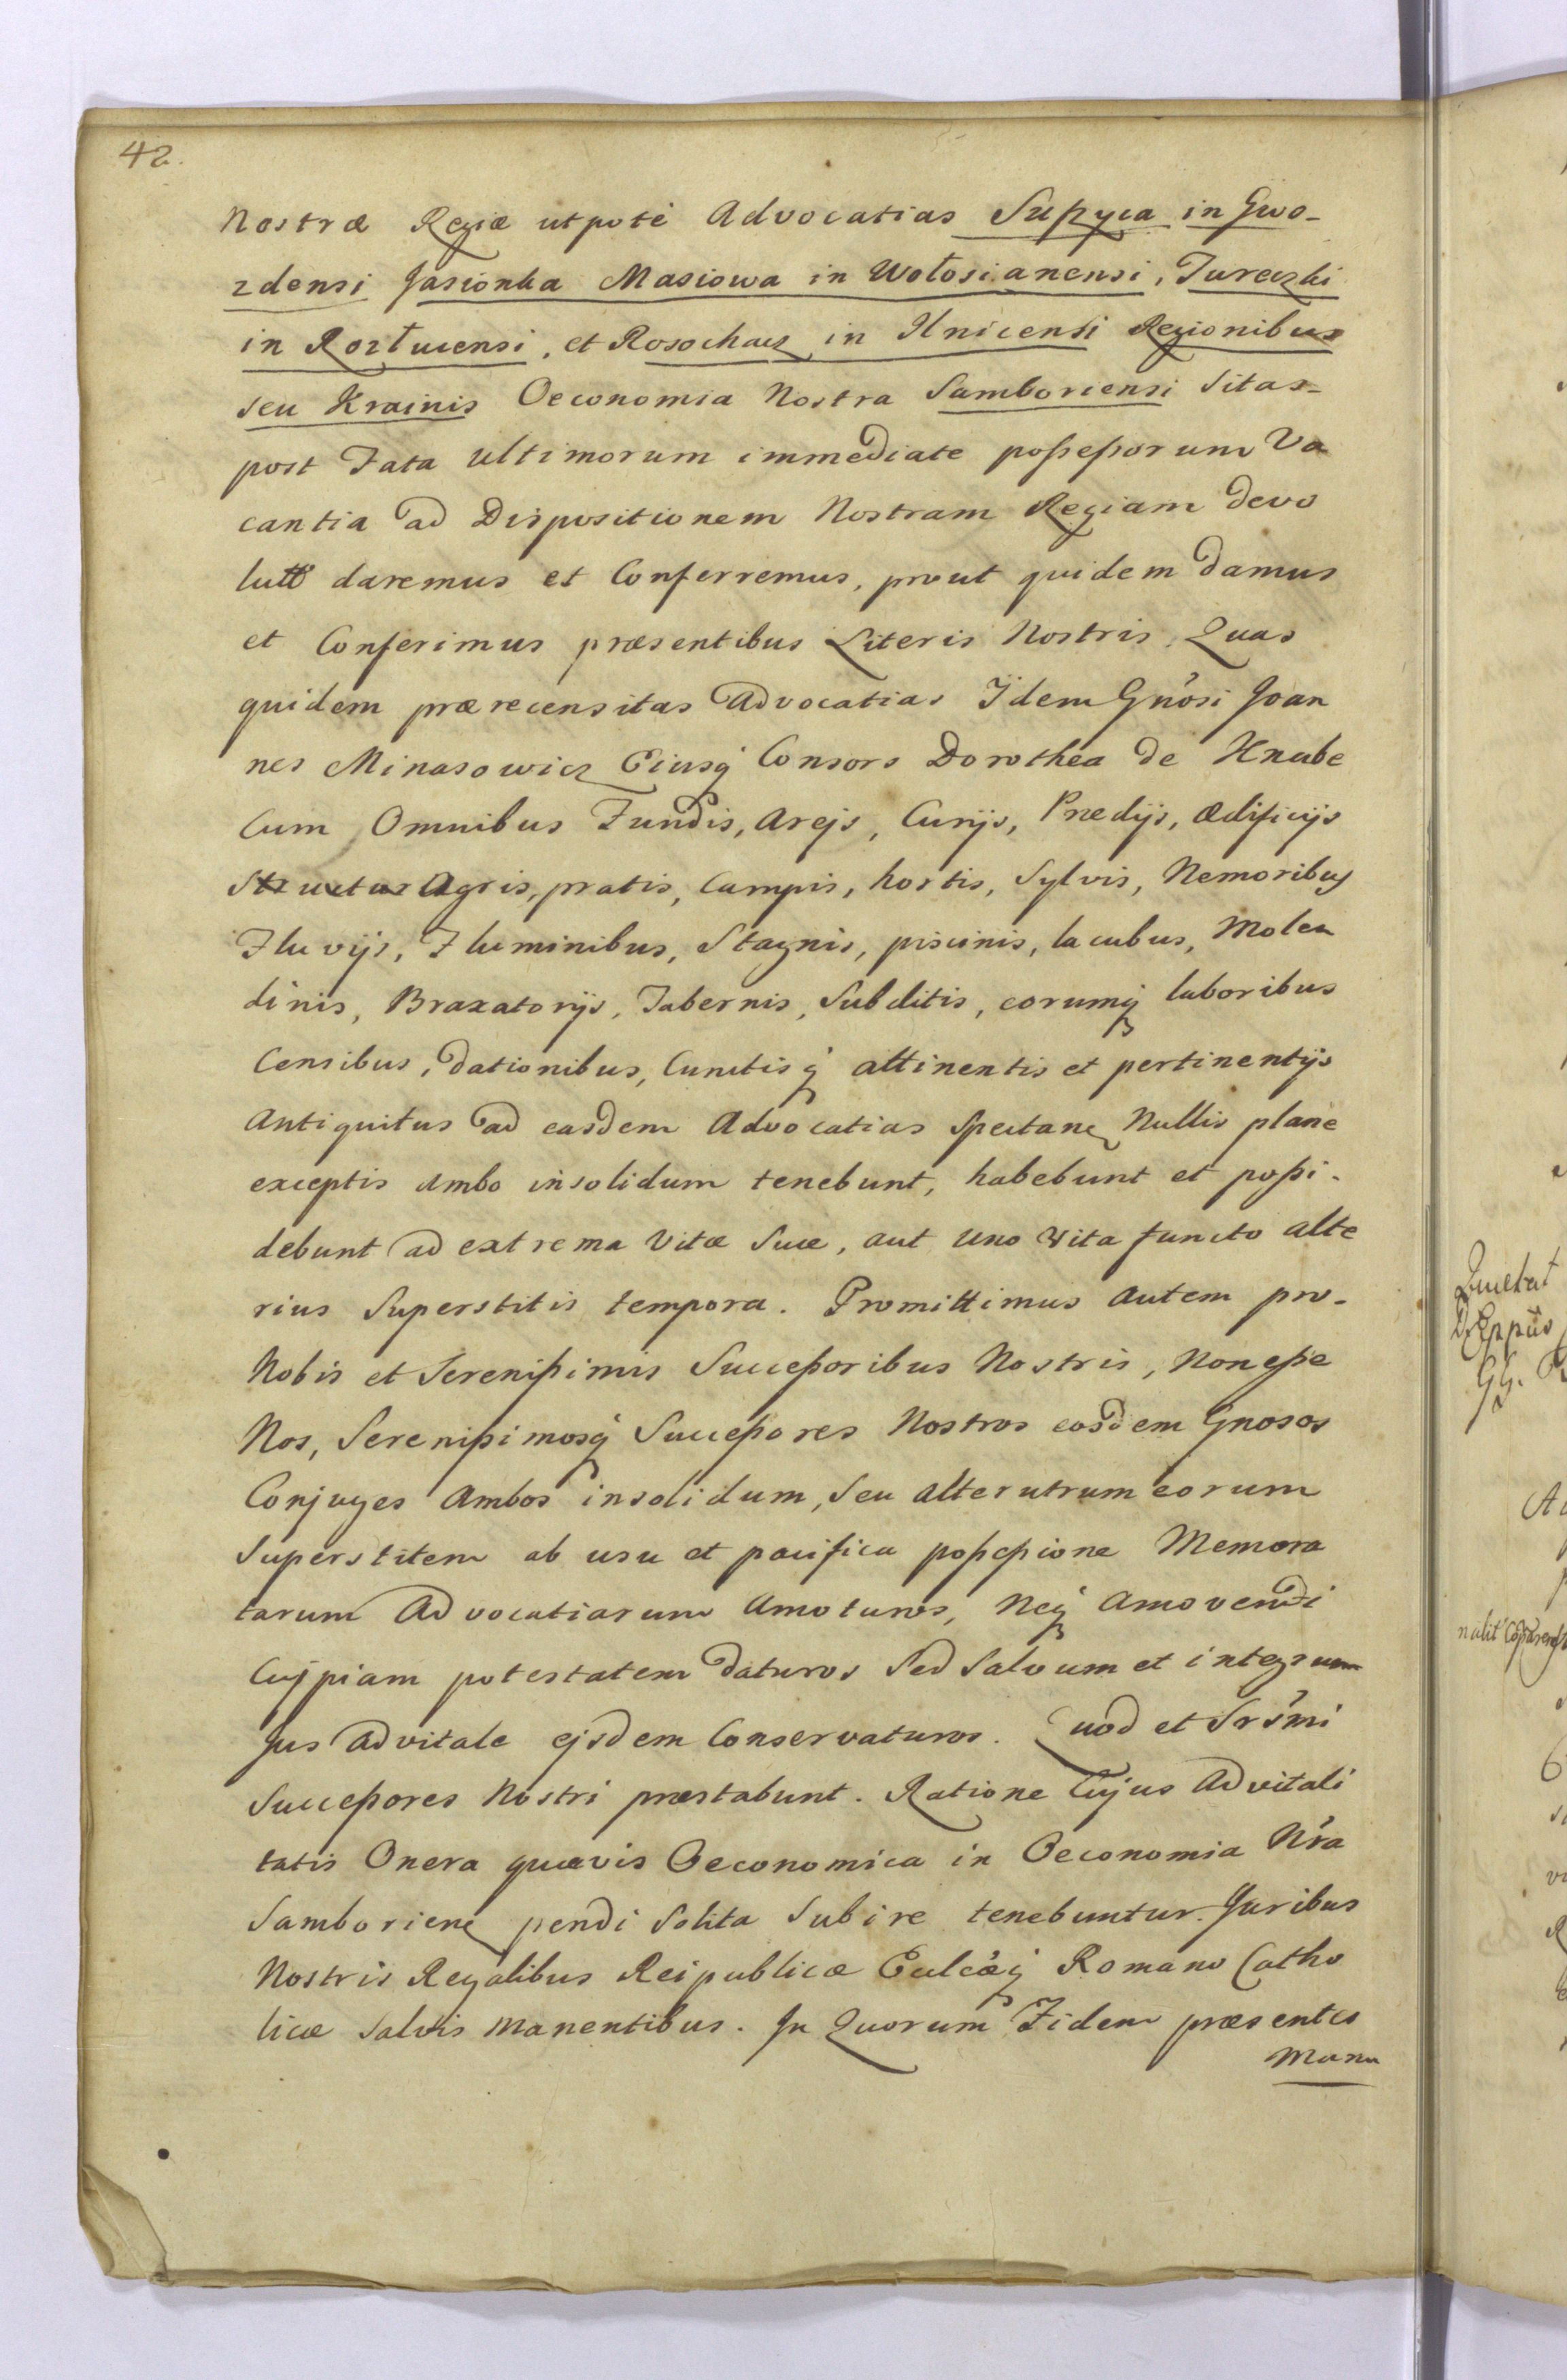 42.
Nostræ Regiæ utpotè Advocatias Supyca in Gwo-
zdensi Jasionka Masiowa in Wołosianensi, Tureczki
in Rozłucensi, et Rosochacz in Ilnicensi Regionibus
seu Krainis Oeconomia Nostra Samboriensi Sitas-
post Fata Ultimorum immediate poßeßorum Va
cantia ad Dispositionem Nostram Regiam devo
daremus et Conferremus, prout quidem damus
et Conferimus præsentibus Literis Nostris. Quas
quidem prærecensitas Advocatias Ijdem Gnôsi Joan
nes Minasowicz Eiusq́ Consors Dorothea de Knabe
Cum Omnibus Fundis, Arejs, Curijs, Prædijs, ædificijs
Agris, pratis, Campis, hortis, Sylvis, Nemoribus
Fluvijs, Fluminibus, Stagnis, piscinis, lacubus, Molen
dinis, Braxatorijs, Tabernis, Subditis, eorumq́ laboribus
Censibus, dationibus, Cunctisq́ attinentis et pertinentijs
Antiquitus ad easdem Advocatias Spectanę Nullis plane
exceptis ambo insolidum tenebunt, habebunt et poßi-
debunt ad extrema Vitæ Suæ, aut Uno Vita functo alte
rius Superstitis tempora. Promittimus autem pro-
Nobis et Serenißimis Succeßoribus Nostris, Non eße
Nos, Serenißimosq́ Succeßores Nostros eosdem Gnosos
Conjuges Ambos insolidum, Seu alterutrum eorum
Superstitem ab usu et pacifica poßeßione Memora
tarum Advocatiarum Amoturos, Neq́ Amovendi
Cujpiam potestatem daturos Sed Salvum et integrum
Jus Advitale ejsdem Conservaturos. Quod et Srśmi
Succeßores Nostri præstabunt. Ratione Cujus Advitali
tatis Onera quævis Oeconomica in Oeconomia Nŕa
Samborienę pendi Solita Subire tenebuntur. Juribus
Nostris Regalibus Reipublicæ Eulcǽq́ Romano Catho
licæ Salvis manentibus. In Quorum Fidem præsentes
Manu